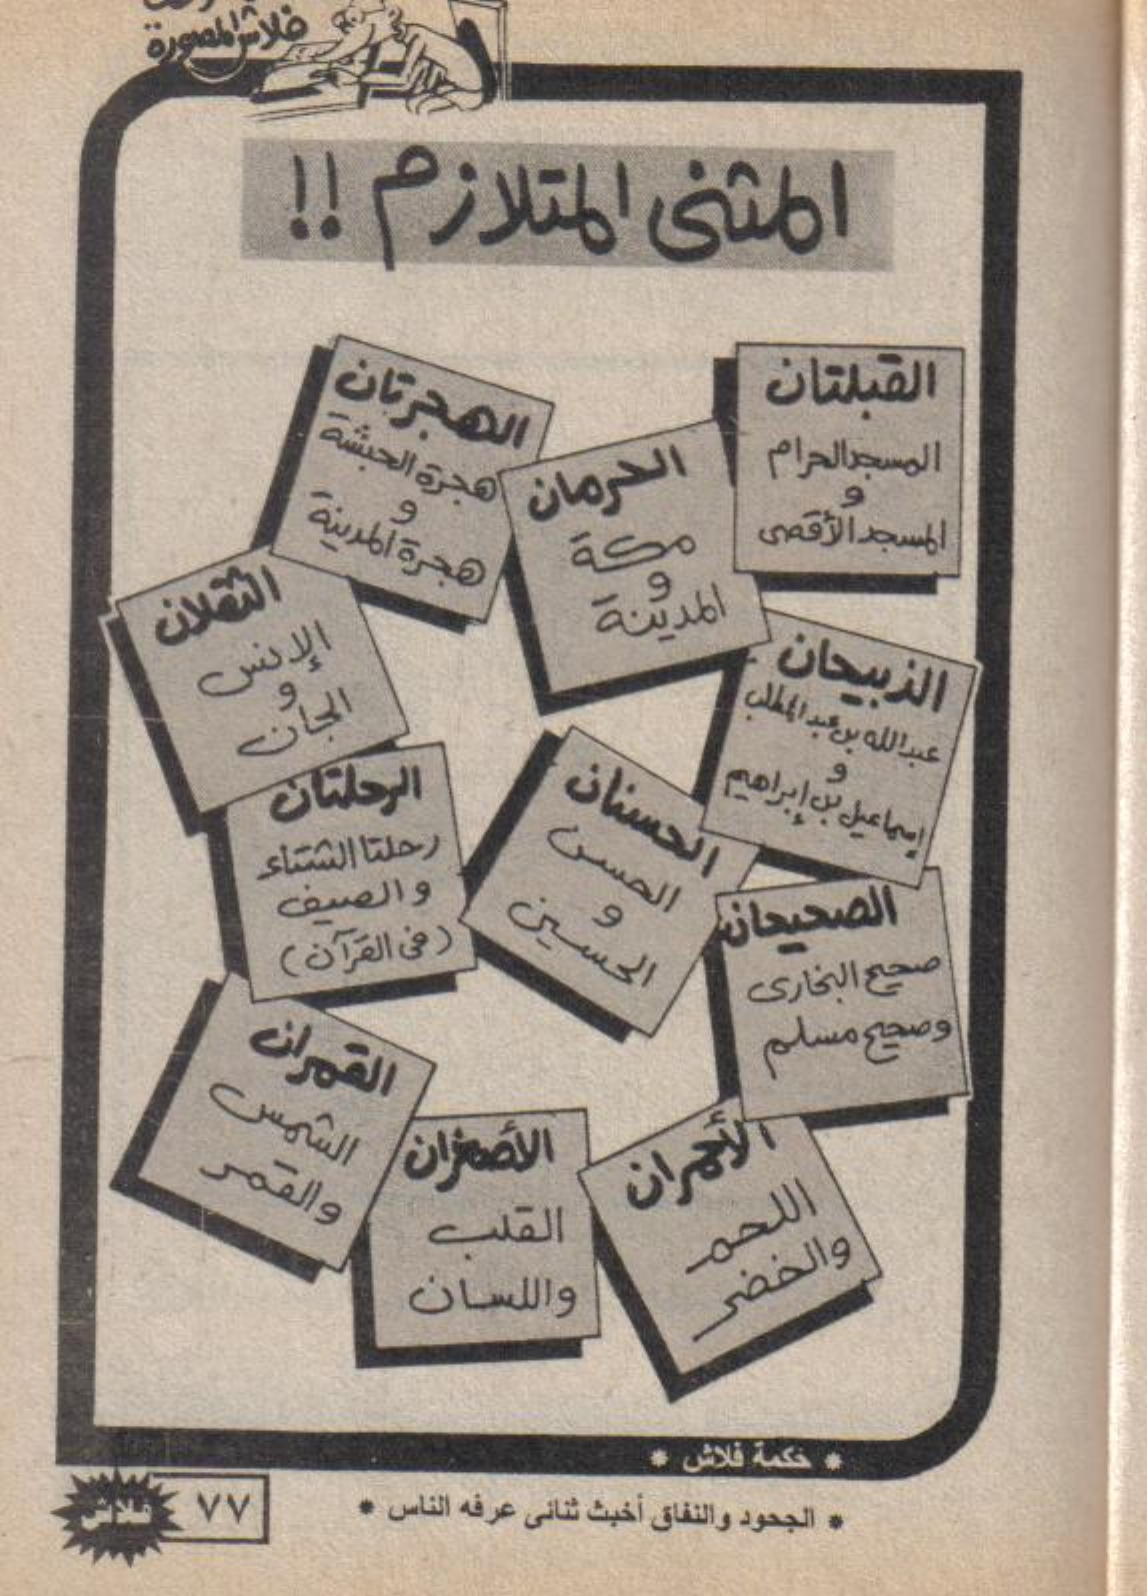 فلاش المصورة
المثنى المتلازم !!
القبلتان
المسجد الحرام
و
المسجد الأقصى
الحرمان
مكة
و
المدينة
الهجرتان
هجرة الحبشة
و
هجرة المدينة
الثقلان
الإنس
و
الجان
الذبيحان
عبدالله بن عبد المطلب
و
إسماعيل بن إبراهيم
الحسنان
الحسن
و
الحسين
الرحلتان
رحلتا الشتاء
والصيف
(فى القرآن)
الصحيحان
صحيح البخارى
وصحيح مسلم
القمران
الشمس
والقمر
الأصغران
القلب
واللسان
الأحمران
اللحم
والخضر
* حكمة فلاش *
* الجحود والنفاق أخبث ثنائى عرفه الناس *
٧٧
فلاش